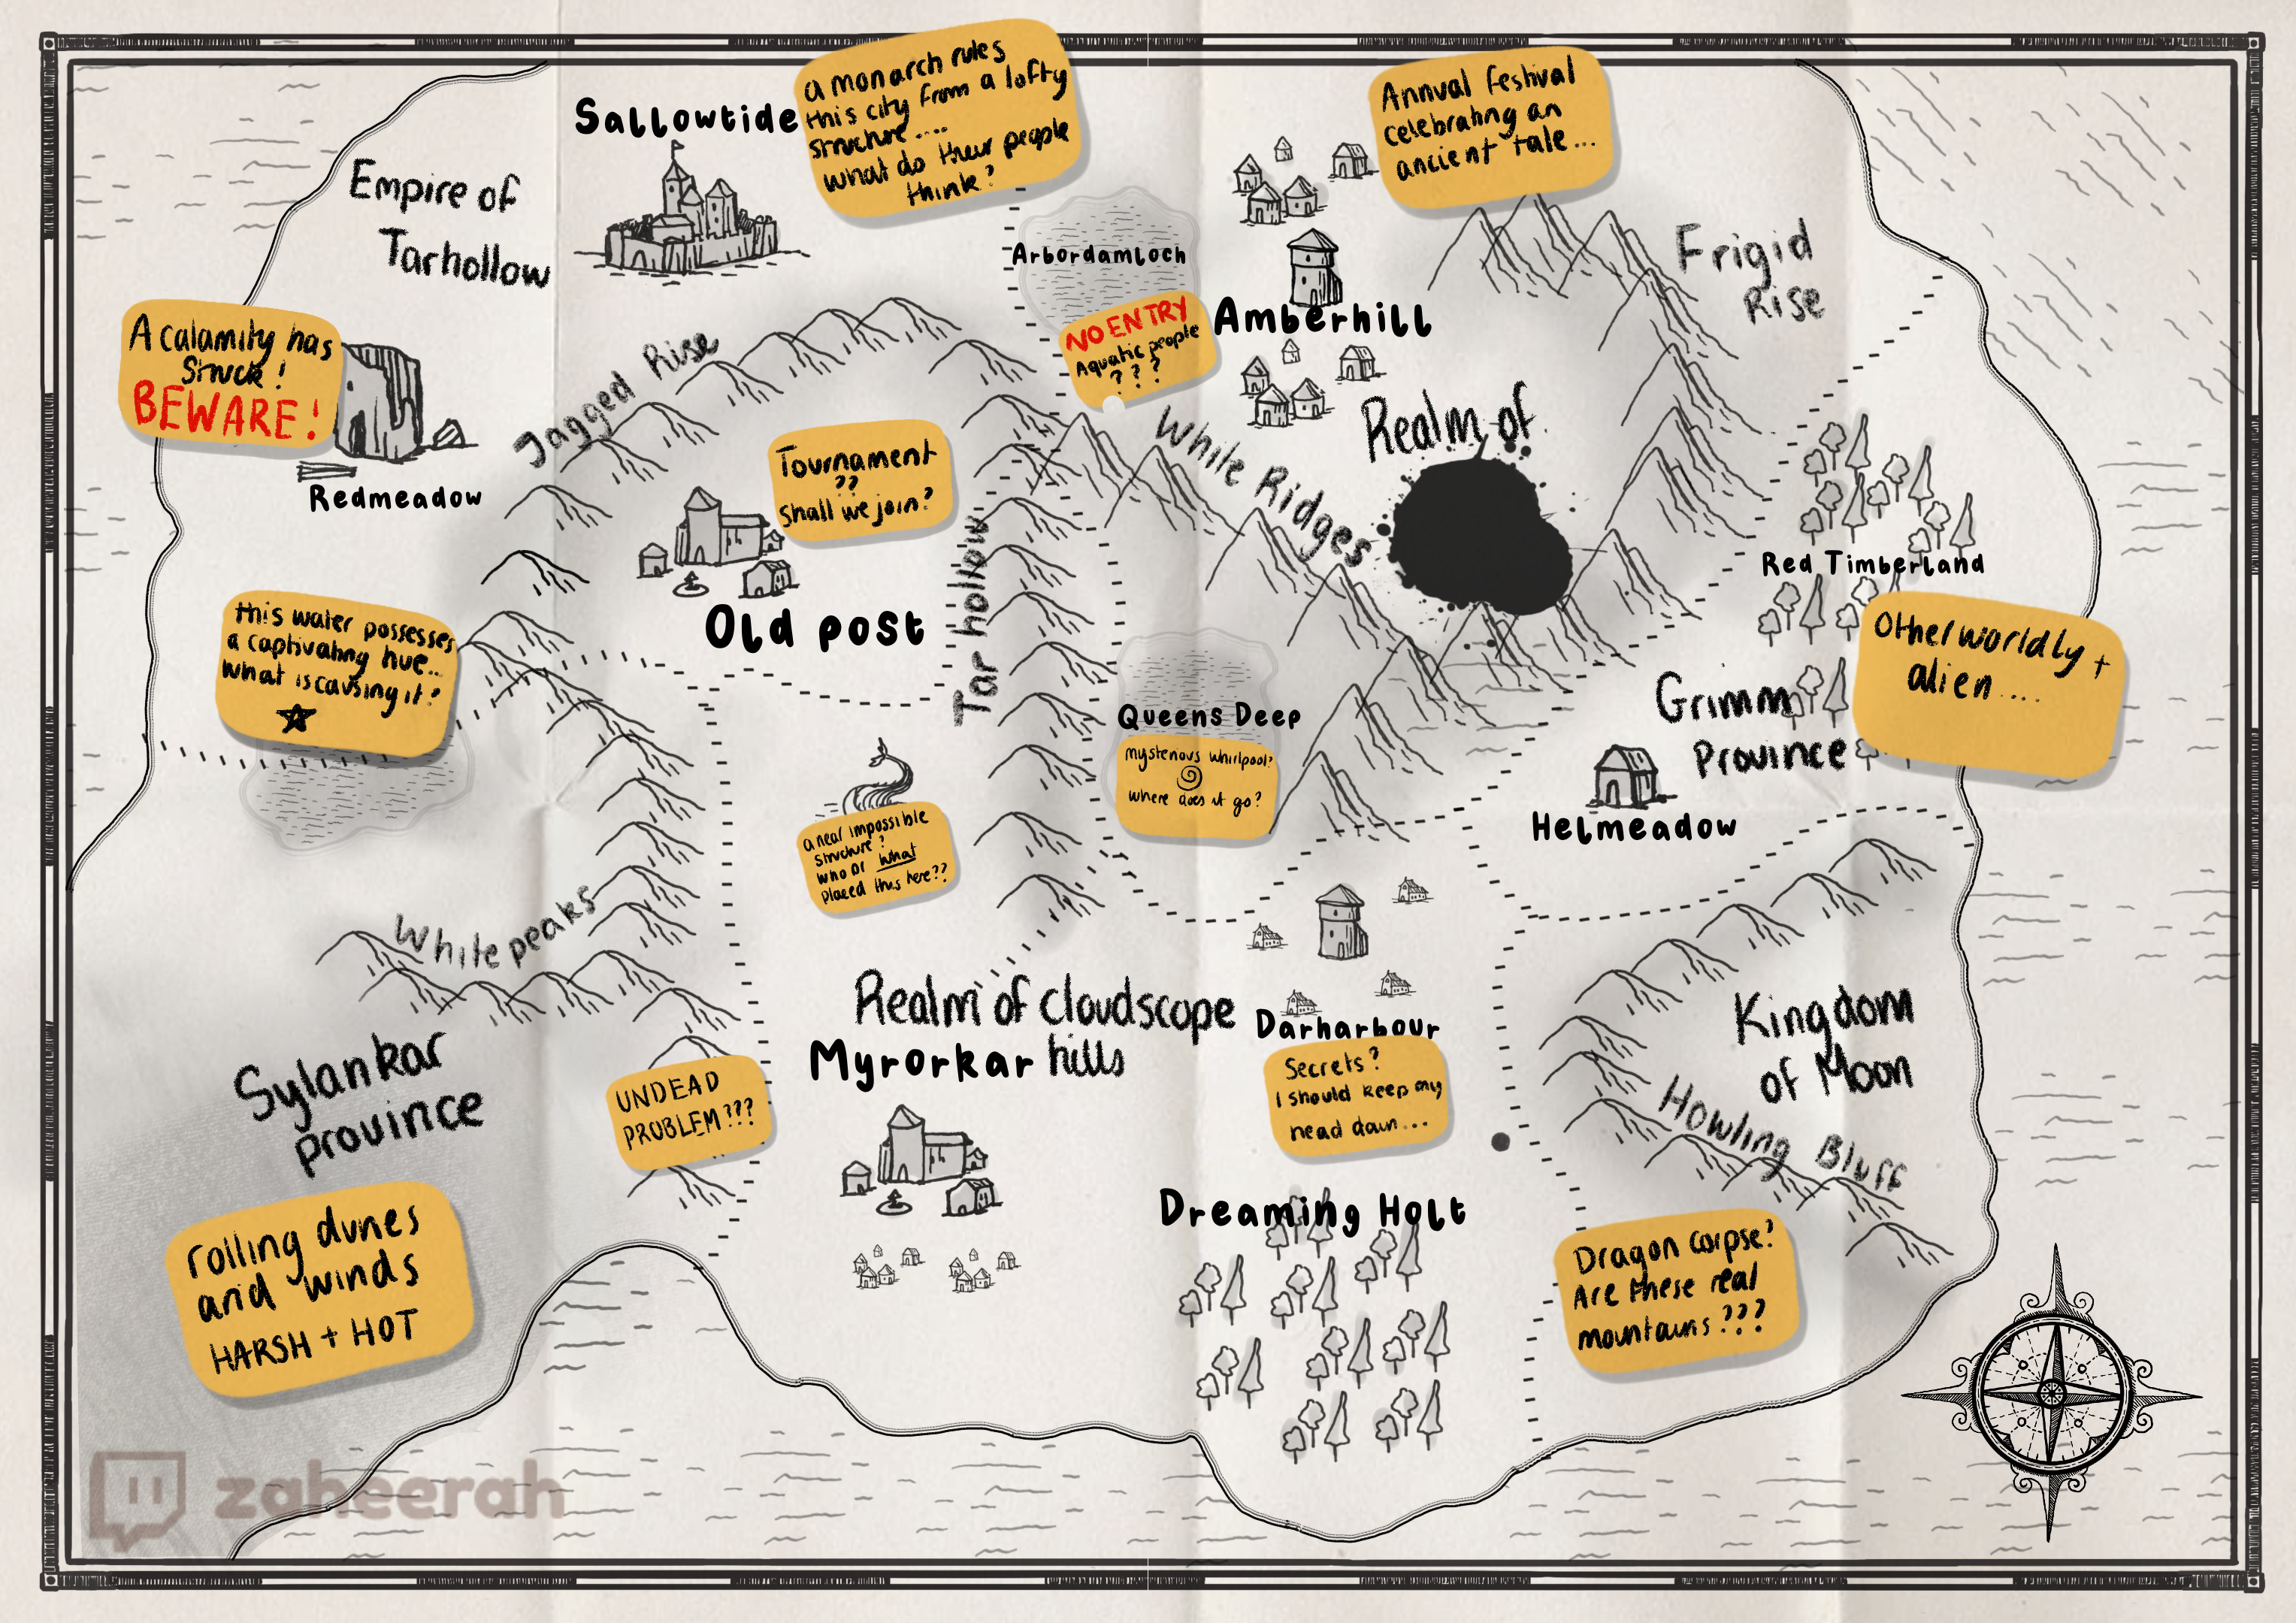 Sallowtide
a monarch rules
this city from a lofty
structure ....
what do their people
think?
Annual festival
celebrating an
ancient tale...
Empire of
Tarhollow
Arbordamloch
NO ENTRY
Aquatic people
? ? ?
Amberhill
Frigid
Rise
A calamity has
struck!
BEWARE!
Redmeadow
Jagged Rise
Tournament
??
shall we join?
Old post
Tar hollow
While Ridges
Realm of
Red Timberland
Otherworldly +
alien ....
this water possesses
a captivating hue...
what is causing it?
Queens Deep
mysterious whirlpool?
where does it go?
Grimm
Province
Helmeadow
a near impossible
structure?
who or what
placed this here??
While peaks
Realm of cloudscope
hills
Myrorkar
Darharbour
Secrets?
I should keep my
head down...
Kingdom
of Moon
Howling Bluff
Sylankar
province
UNDEAD
PROBLEM???
Dreaming Holt
Dragon corpse?
Are these real
mountains???
rolling dunes
and winds
HARSH + HOT
zaheerah